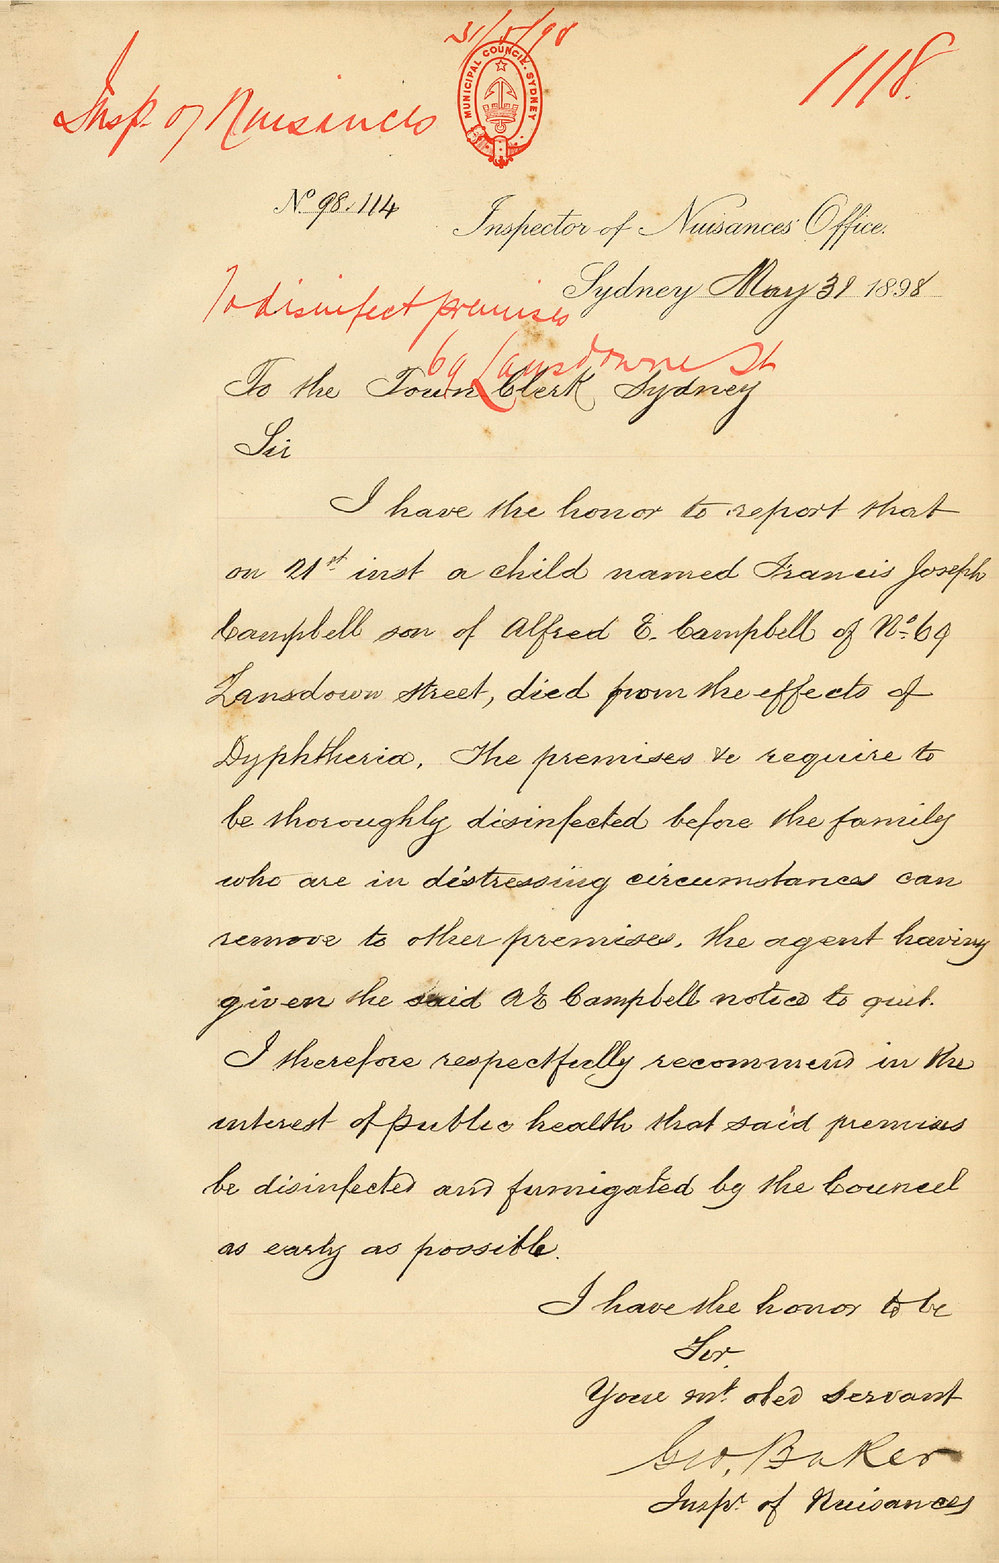 31/5/98
Insp. of Nuisances
MUNICIPAL COUNCIL. SYDNEY
1118.
No 98.114
Inspector of Nuisances' Office.
Sydney May 31 1898
To disinfect premises
69 Lansdowne St
To the Town Clerk Sydney
Sir
I have the honor to report that
on 21st inst a child named Francis Joseph
Campbell son of Alfred E. Campbell of No. 69
Lansdown street, died from the effects of
Dyphtheria. The premises &c require to
be thoroughly disinfected before the family
who are in distressing circumstances can
remove to other premises. the agent having
given the said AE Campbell notice to quit.
I therefore respectfully recommend in the
interest of public health that said premises
be disinfected and fumigated by the Council
as early as possible.
I have the honor to be
Sir.
Your mt. obed servant
Geo. Baker
Inspr of Nuisances